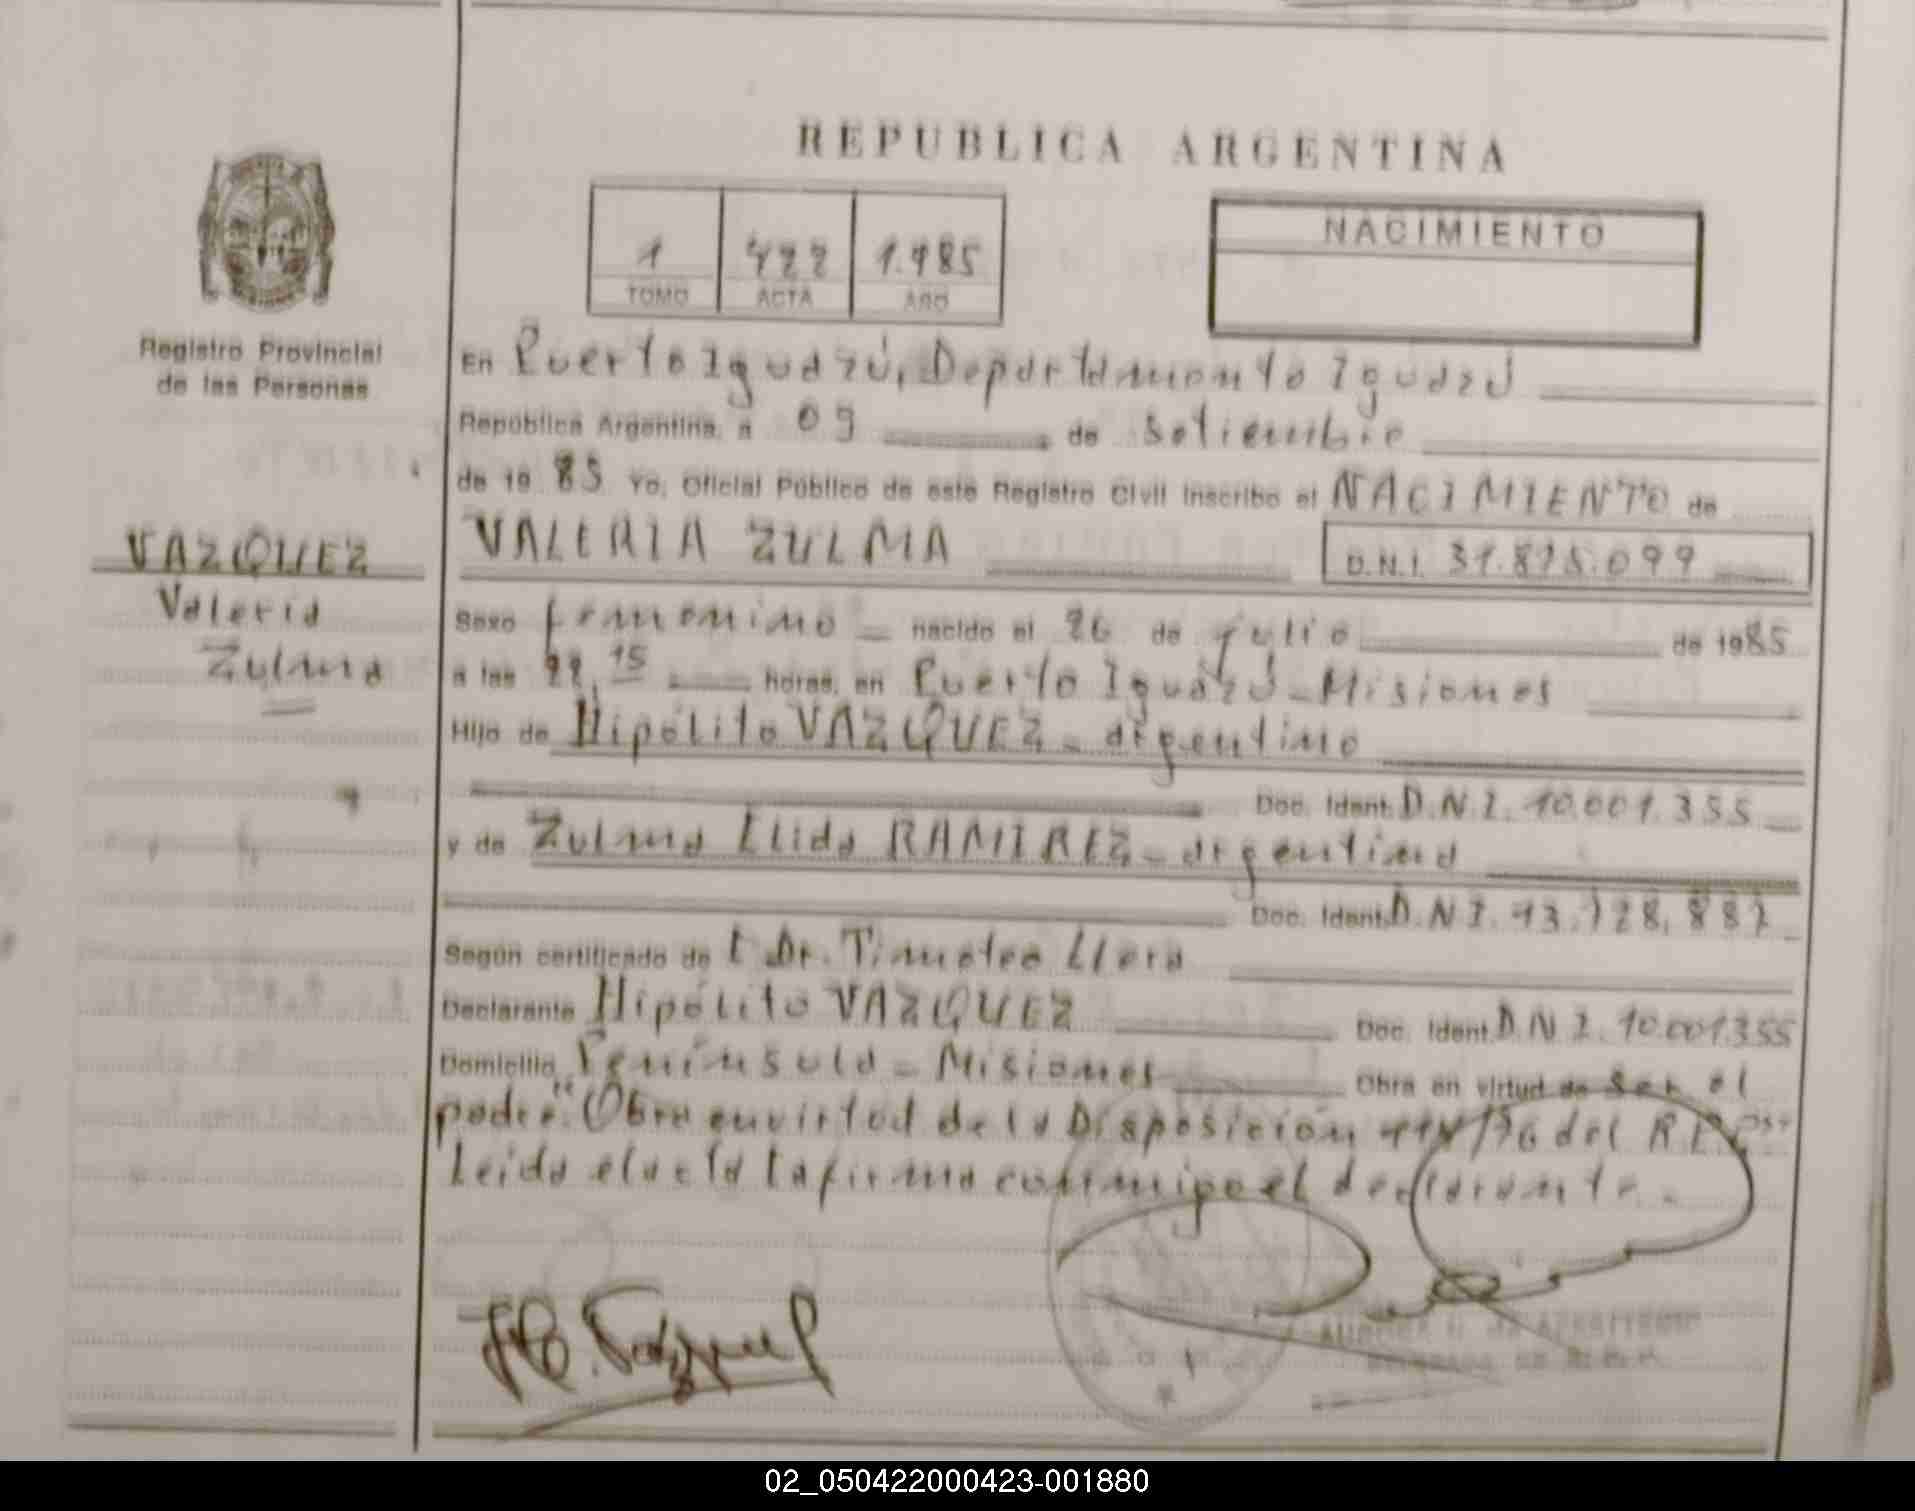 REPUBLICA ARGENTINA
NACIMIENTO
1 422 1.985
TOMO ACTA AÑO
Registro Provincial
de las Personas
VAZQUEZ
Valeria
Zulma
En Puerto Iguazú, Departamento Iguazú
República Argentina, a 09 de setiembre
de 19 85 Yo, Oficial Público de este Registro Civil inscribo el NACIMIENTO de
VALERIA ZULMA D.N.I. 31.875.099
Sexo femenino nacido el 26 de julio de 1985
a las 22,15 horas, en Puerto Iguazú - Misiones
Hijo de Hipólito VAZQUEZ - argentino
Doc. Ident. D.N.I. 10.001.355
y de Zulma Elida RAMIREZ - argentina
Doc. Ident. D.N.I. 13.728.887
Según certificado de Dr. Timoteo Llera
Declarante Hipólito VAZQUEZ Doc. Ident. D.N.I. 10.001355
Domicilio Península - Misiones Obra en virtud de ser el
padre. "Obra en virtud de la Disposición del
Leída el acta la firma conmigo el declarante.
H. Vazquez
02_050422000423-001880